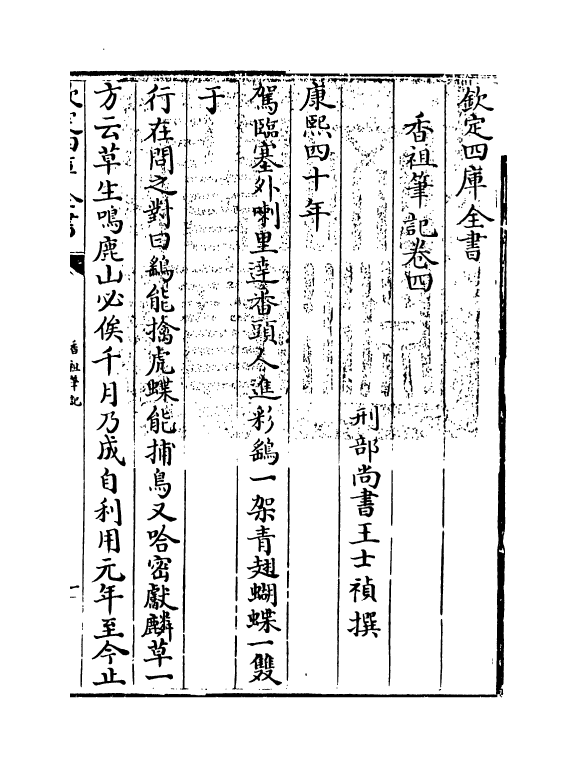 欽定四庫全書
香祖筆記卷四
刑部尚書王士禎撰
康熙四十年
駕臨塞外喇里達番頭人進彩鷂一架青翅蝴蝶一雙
于
行在問之對曰鷂能擒虎蝶能捕鳥又哈密獻麟草一
方云草生鳴鹿山必俟千月乃成自利用元年至今止
欽定四庫全書
香祖筆記
一